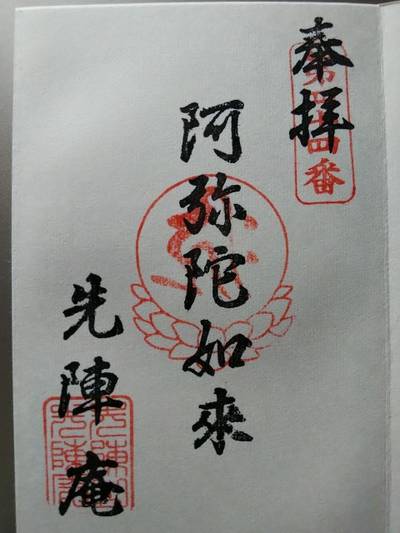 奉拝
阿弥陀如來
先陣庵